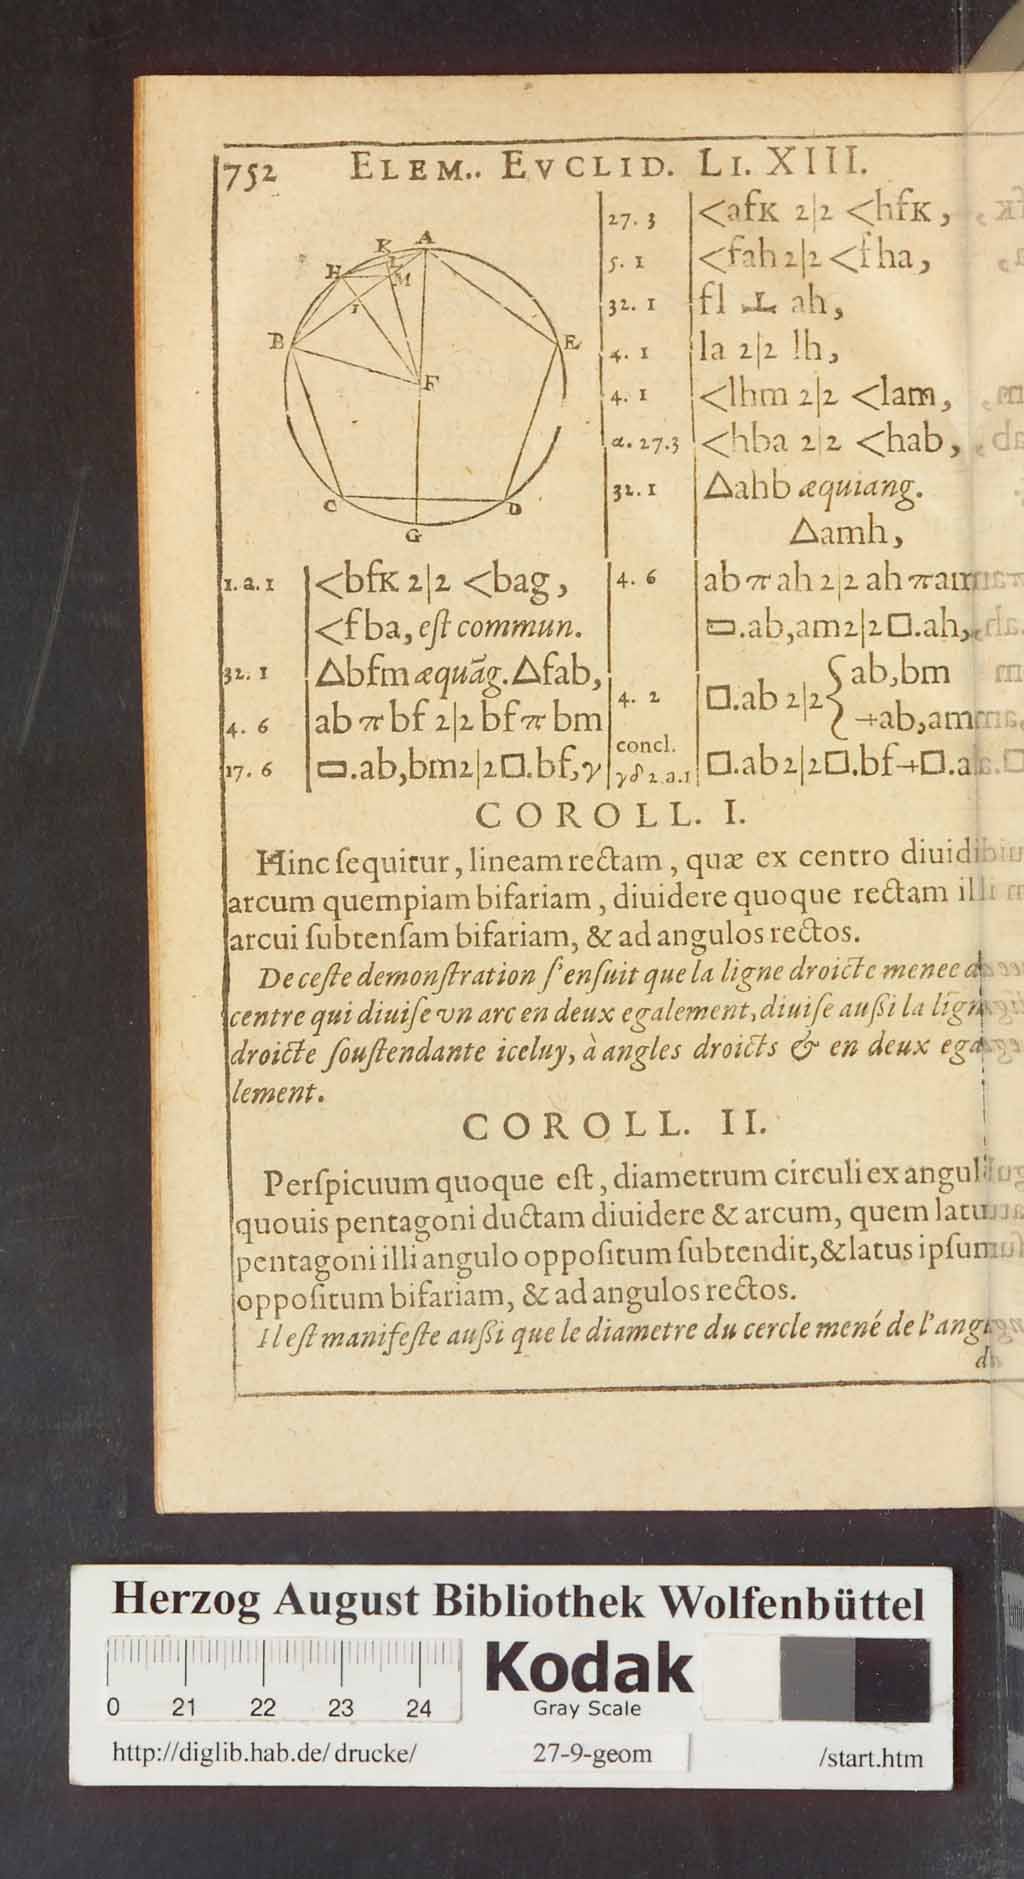 752 ELEM.. EVCLID. LI. XIII.
K A
L
H M
I
B E
F
C D
G
27. 3 <afK 2|2 <hfK,
5. 1 <fah 2|2 <fha,
32. 1 fl ⊥ ah,
4. 1 la 2|2 lh,
4. 1 <lhm 2|2 <lam,
α. 27.3 <hba 2|2 <hab,
32. 1 △ahb æquiang.
△amh,
1. a. 1 <bfK 2|2 <bag,
<fba, eſt commun.
32. 1 △bfm æquãg. △fab,
4. 6 ab π bf 2|2 bf π bm
17. 6 ▭.ab,bm 2|2 □.bf, γ
4. 6 ab π ah 2|2 ah π am
▭.ab,am 2|2 □.ah,
4. 2 □.ab 2|2 { ab,bm
+ab,am
concl.
γδ 2.a.1 □.ab 2|2 □.bf+□.a
COROLL. I.
Hinc ſequitur, lineam rectam, quæ ex centro diuidi
arcum quempiam bifariam, diuidere quoque rectam illi
arcui ſubtenſam bifariam, & ad angulos rectos.
De ceſte demonſtration ſ'enſuit que la ligne droicte menee
centre qui diuiſe vn arc en deux egalement, diuiſe außi la lign
droicte ſouſtendante iceluy, à angles droicts & en deux ega
lement.
COROLL. II.
Perſpicuum quoque eſt, diametrum circuli ex angul
quouis pentagoni ductam diuidere & arcum, quem latu
pentagoni illi angulo oppoſitum ſubtendit, & latus ipſum
oppoſitum bifariam, & ad angulos rectos.
Il eſt manifeſte außi que le diametre du cercle mené de l'ang
d
Herzog August Bibliothek Wolfenbüttel
0 21 22 23 24
Kodak
Gray Scale
http://diglib.hab.de/drucke/ 27-9-geom /start.htm